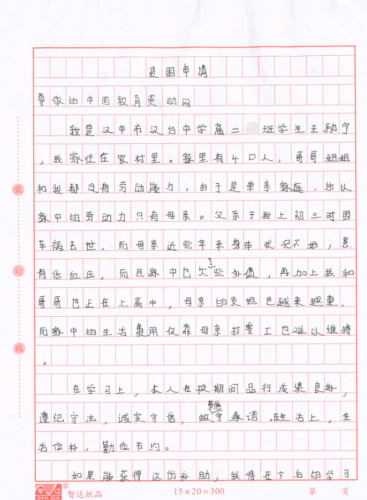 贫困申请
尊敬的中国教育资助网
我是汉中市汉台中学高二 班学生王勋宁
，我家住在农村里。家里有4口人，哥哥姐姐
和我都没有劳动能力，由于是单亲家庭，所以
家中的劳动力只有母亲。父亲于我上初三时因
车祸去世，而母亲近些年来身体状况不好，患
有低血压，而且家中已欠了些外债，再加上我和
哥哥也正在上高中，母亲的负担也越来越重，
而家中的生活费用仅靠母亲打零工也难以维持
。
在学习上，本人在校期间品行成绩良好，
遵纪守法，诚实守信， 守承诺，在生活上，生
活俭朴，勤俭节约。
如果能获得这份补助，我将在今后的学习
装
订
线
智达纸品
15×20=300
第 页